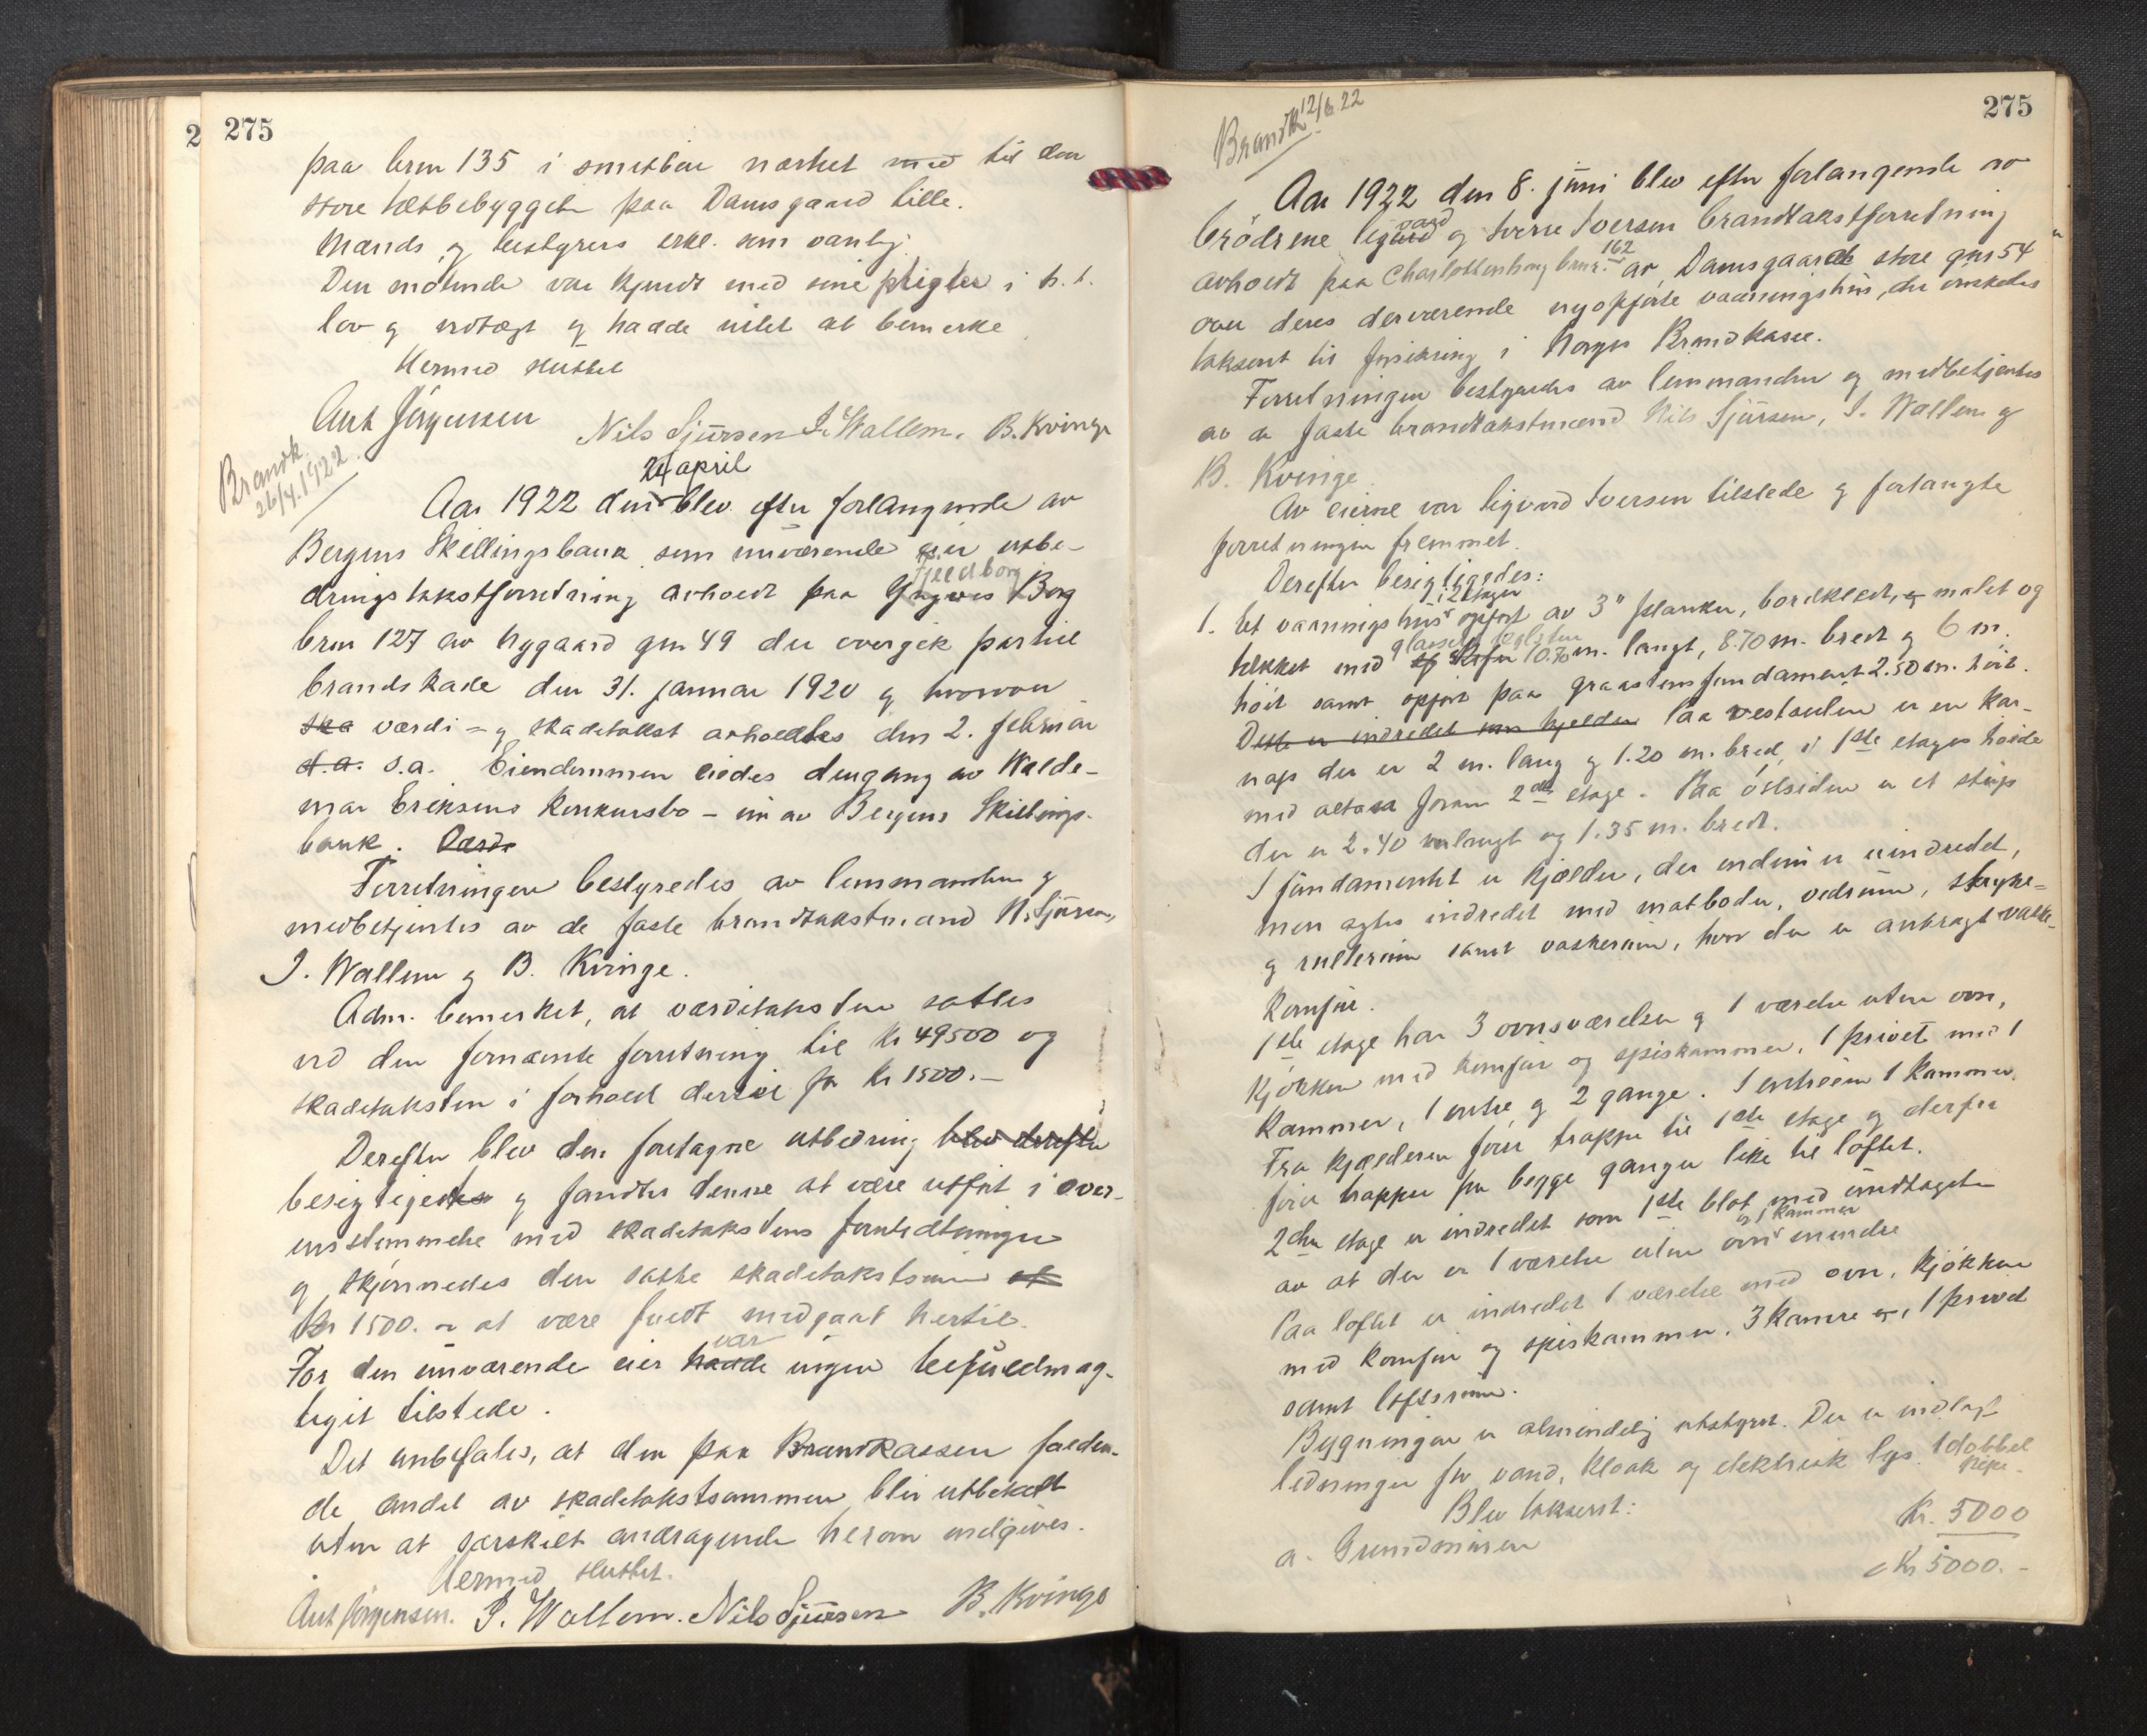 275
paa brn 135 i smitbar nærhet med til den
store tætbebyggelse paa Damsgaard lille.
Mænds og bestyrers erkl. som vanlig.
Den mötende var kjendt med sine pligter i h. t.
lov og vedtægt og hadde intet at bemerke
Hermed sluttet
Ant Jörgensen Nils Sjursen I. Wallem. B. Kvinge
Brandk. 26/4. 1922.
24 april
Aar 1922 den blev efter forlangende av
Bergens Skillingsbank som nuværende eier utbe-
Fjeldborg
dringstakstforretning avholdt paa Yngves Borg
brn 127 av Nygaard gn 49 der overgik partiel
brandskade den 31. januar 1920 og hvorover
ska værdi- og skadetakst avholdtes den 2. februar
d.a. s.a. Eiendommen eiedes dengang av Walde-
mar Eriksens konkursbo - nu av Bergens Skillings-
bank. Værdi
Forretningen bestyredes av lensmanden og
medbetjentes av de faste brandtakstmænd N. Sjursen,
I. Wallem og B. Kvinge.
Adm. bemerket, at værditaksten sattes
ved den fornævnte forretning til kr 49500 og
skadetaksten i forhold dertil for kr 1500.-
Derefter blev den foretagne utbedring blev derefter
besigtigedes og fandtes denne at være utfört i over-
ensstemmelse med skadetakstens forutsætninger
og skjönnedes den satte skadetakstsum at
kr 1500.- at være fuldt medgaat hertil.
var
For den nuværende eier hadde ingen befuldmæg-
tiget tilstede.
Det anbefales, at den paa Brandkassen falden-
de andel av skadetakstsummen blir utbetalt
uten at særskilt andragende herom indgives.
Hermed sluttet.
Ant Jörgensen. I. Wallem. Nils Sjursen B. Kvinge
275
Brandk 12/6.22
Aar 1922 den 8. juni blev efter forlangende av
brödrene Sigurd vard og Sverre Iversen brandtakstforretning
avholdt paa Charlottenborg brnr. 162 av Damsgaard store gnr 54
over deres derværende nyopförte vaaningshus, der önskedes
taksert til forsikring i Norges Brandkasse.
Forretningen bestyredes av lensmanden og medbetjentes
av de faste brandtakstmænd Nils Sjursen, I. Wallem og
B. Kvinge.
Av eierne var Sigvard Iversen tilstede og forlangte
forretningen fremmet.
Derefter besigtigedes:
i 2 etager
1. Et vaaningshus opfört av 3" planker, bordklædt, og malet og
glaserte teglsten
tækket med og skifer 10.70 m. langt, 8.70 m. bredt og 6 m.
höit samt opfört paa graastensfundament 2.50 m. höit.
Dette er indredet som kjelder Paa vestsiden er en kar-
nap der er 2 m. lang og 1.20 m. bred, i 1ste etages höide
med altan foran 2den etage. Paa östsiden er et skup
der er 2.40 m langt og 1.35 m. bredt.
I fundamentet er kjælder, der endnu er uindredet,
men agtes indredet med matboder, vedrum, stryke-
og rullerum samt vaskerum, hvor der er anbragt vaske-
komfur.
1ste etage har 3 ovnsværelser og 1 værelse uten ovn,
kjökken med komfur og spiskammer, 1 privet med 1
kammer, 1 entre og 2 gange. I entreen 1 kammer.
Fra kjælderen förer trappe til 1ste etage og derfra
förer trapper fra begge ganger like til loftet.
2den etage er indredet som 1ste blot med undtagelse
og 1 kammer
av at der er 1 værelse uten ovn mindre
Paa loftet er indredet 1 værelse med ovn, kjökken
med komfur og spiskammer, 3 kamre og, 1 privet
samt loftsrum.
Bygningen er almindelig utstyret. Der er indlagt
ledninger for vand, kloak og elektrisk lys. 1 dobbel
pipe.
Blev taksert:
a. Grundmuren Kr. 5000
Kr 5000.-